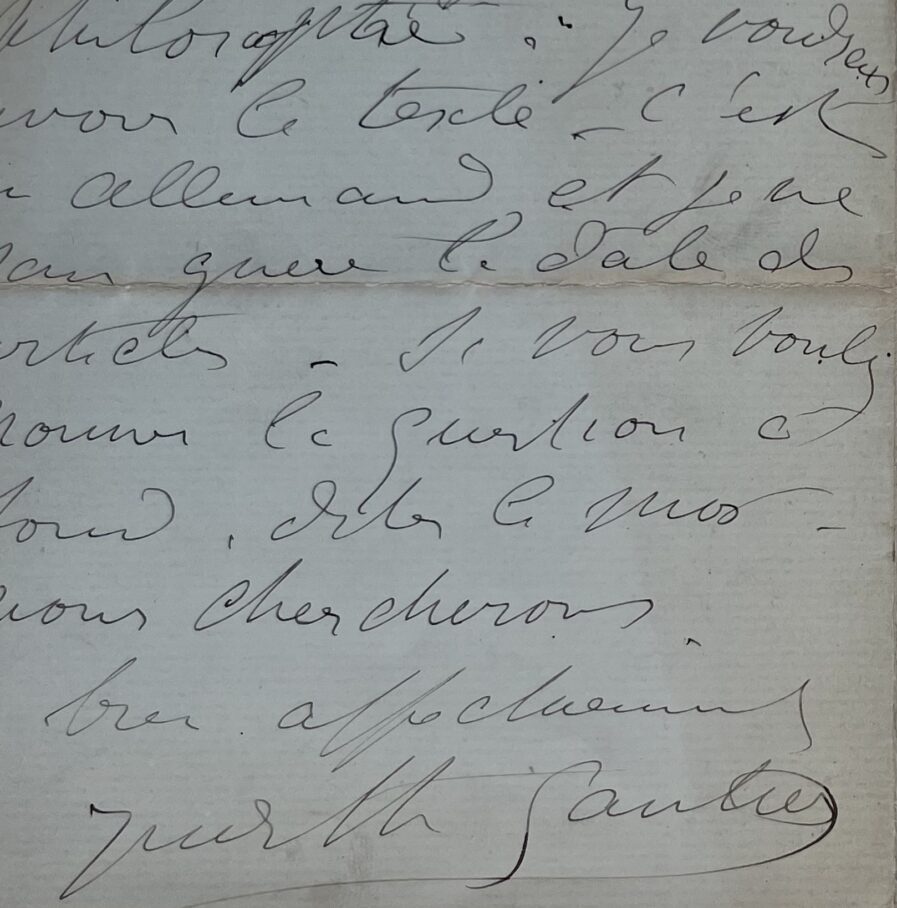 philosophie : je voudrais
avoir le texte - c'est
allemand et je ne
sais guère la date des
articles - Si vous voulez
la question à
fond, dites le moi -
nous chercherons.
bien affectueusement
Judith Gautier